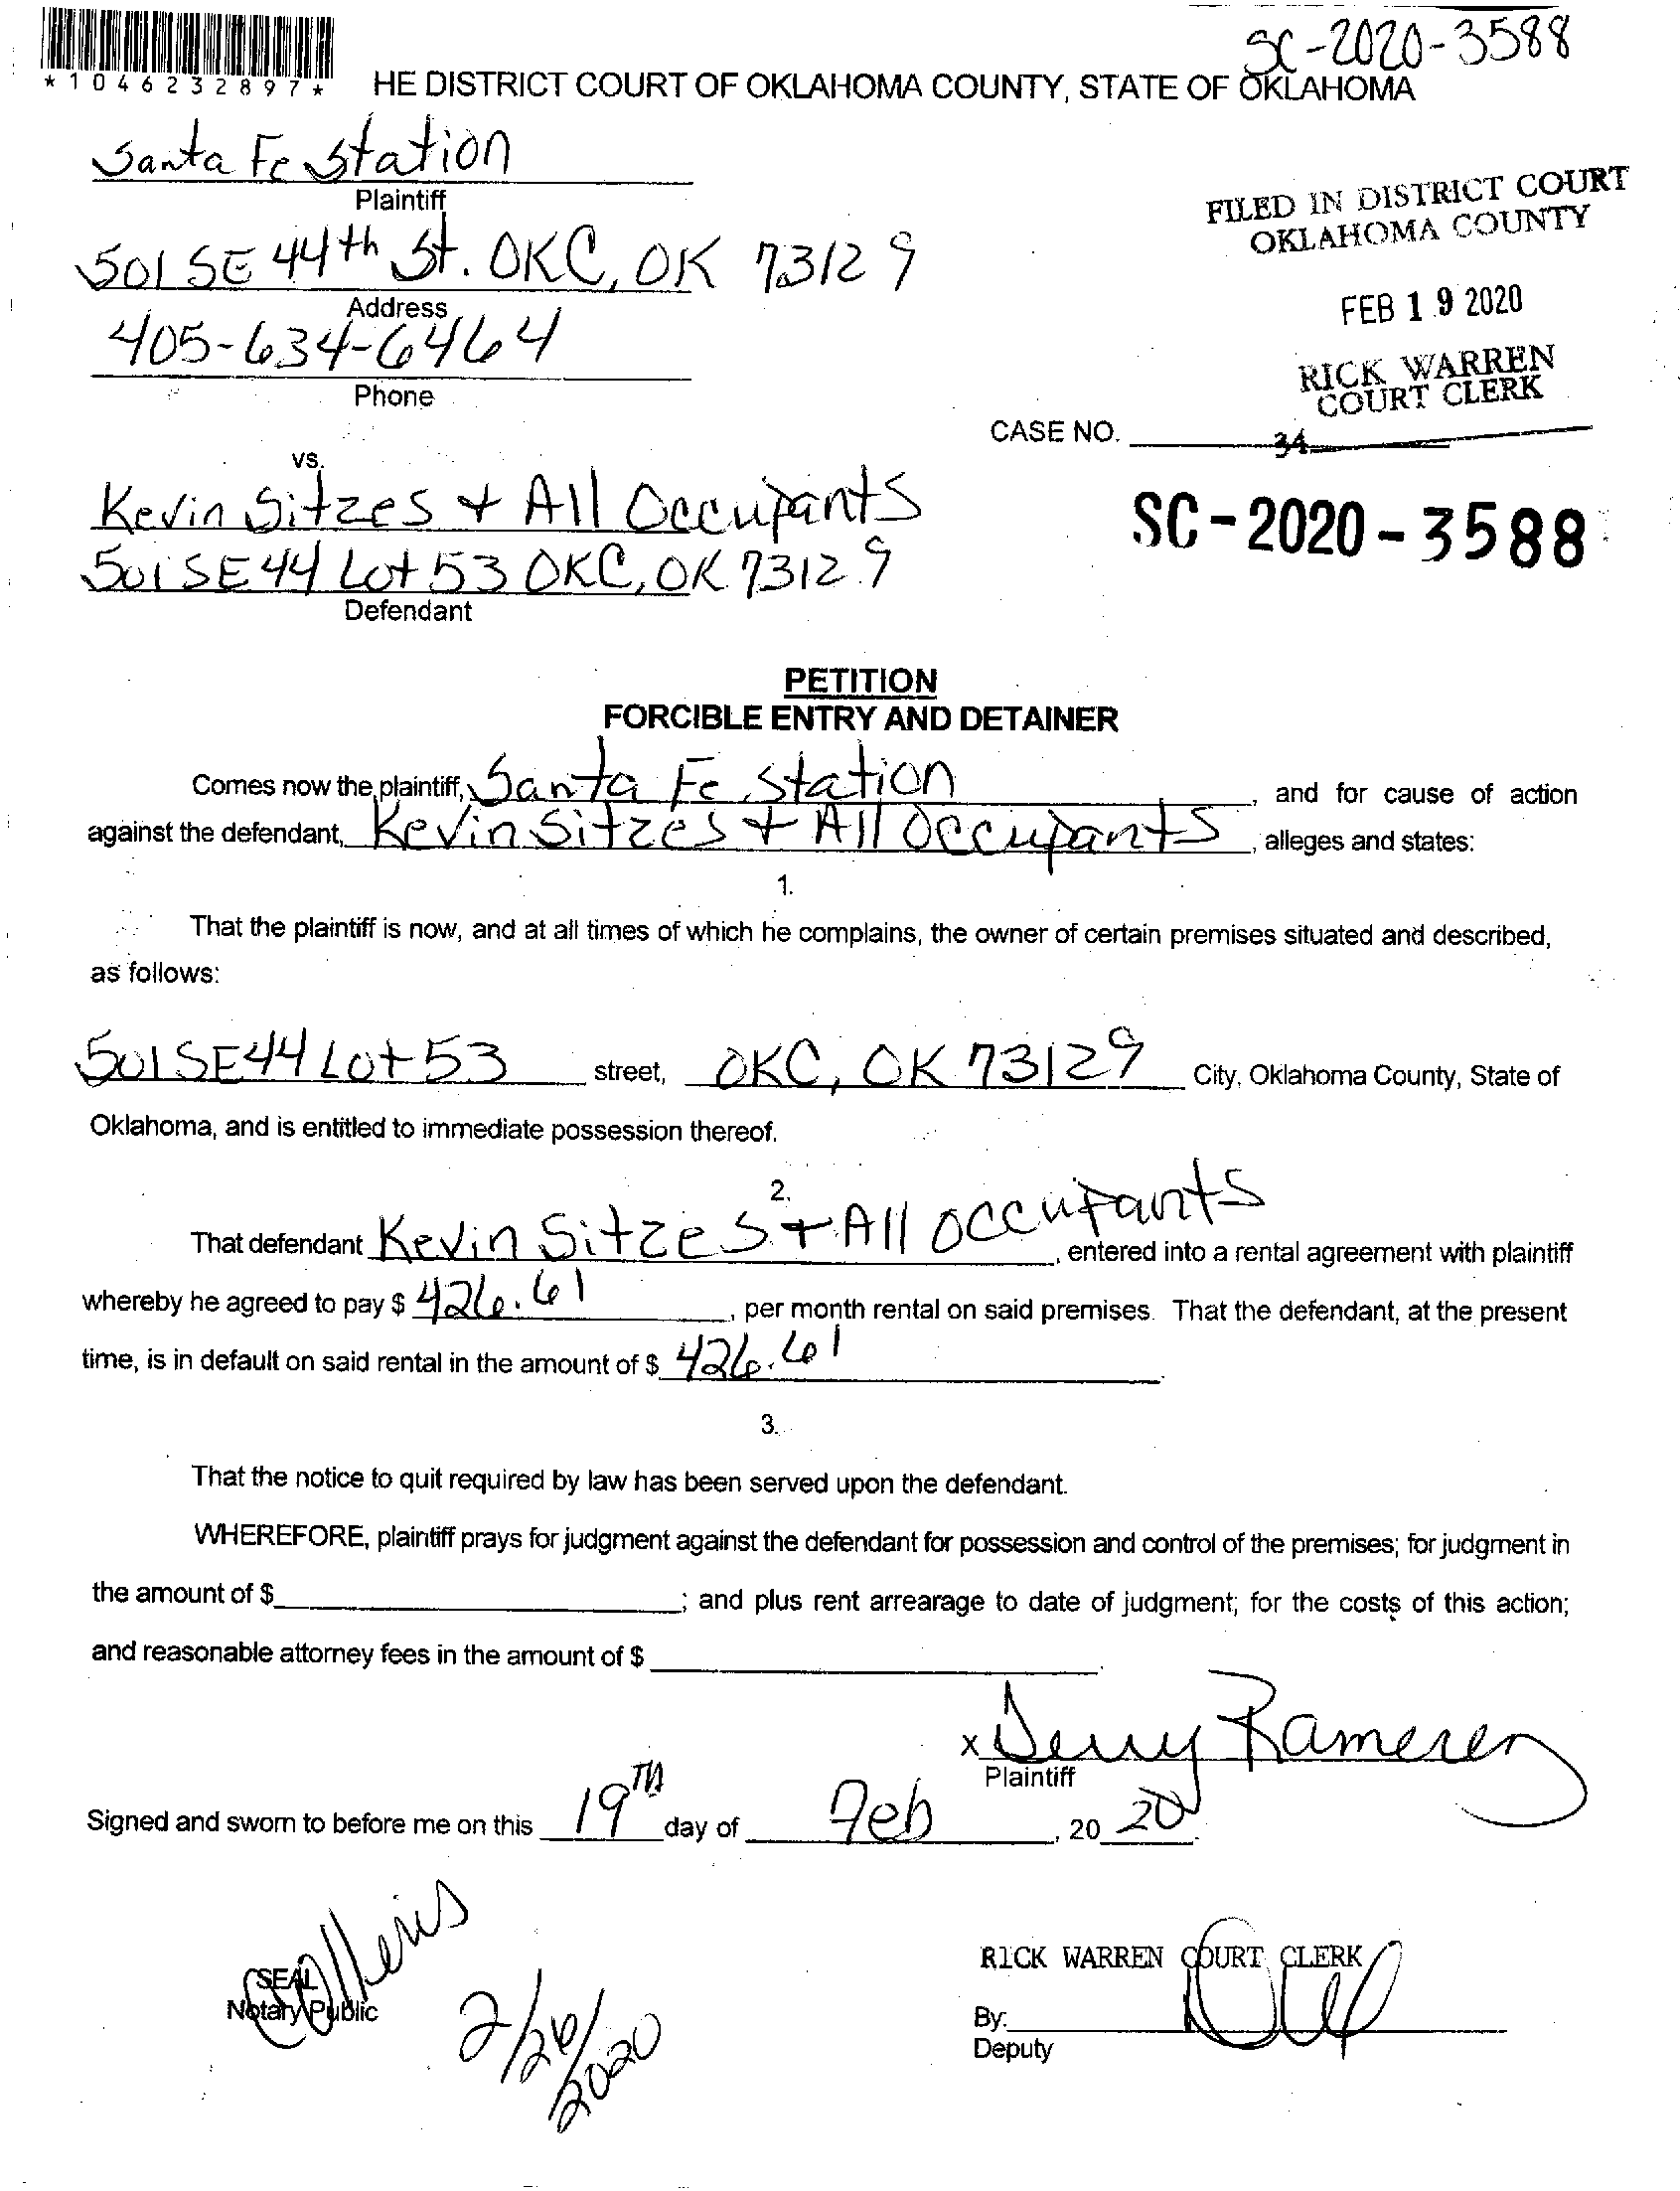 SC-2020-3588
*1046232897* HE DISTRICT COURT OF OKLAHOMA COUNTY, STATE OF OKLAHOMA
Santa Fe Station
Plaintiff
501 SE 44th St. OKC, OK 73129
Address
405-634-6464
Phone
FILED IN DISTRICT COURT
OKLAHOMA COUNTY
FEB 19 2020
RICK WARREN
COURT CLERK
CASE NO.
34
vs.
Kevin Sitzes + All Occupants
501 SE 44 Lot 53 OKC, OK 73129
Defendant
SC-2020-3588
PETITION
FORCIBLE ENTRY AND DETAINER
Comes now the plaintiff, Santa Fe Station, and for cause of action
against the defendant, Kevin Sitzes + All Occupants, alleges and states:
1.
That the plaintiff is now, and at all times of which he complains, the owner of certain premises situated and described,
as follows:
501 SE 44 Lot 53 street, OKC, OK 73129 City, Oklahoma County, State of
Oklahoma, and is entitled to immediate possession thereof.
2.
That defendant Kevin Sitzes + All occupants, entered into a rental agreement with plaintiff
whereby he agreed to pay $ 426.61, per month rental on said premises. That the defendant, at the present
time, is in default on said rental in the amount of $ 426.61.
3.
That the notice to quit required by law has been served upon the defendant.
WHEREFORE, plaintiff prays for judgment against the defendant for possession and control of the premises; for judgment in
the amount of $ ; and plus rent arrearage to date of judgment; for the costs of this action;
and reasonable attorney fees in the amount of $ .
x
Plaintiff
Signed and sworn to before me on this 19TH day of Feb, 20 20.
SEAL
Notary Public
2/26/2020
RICK WARREN COURT CLERK
By:
Deputy